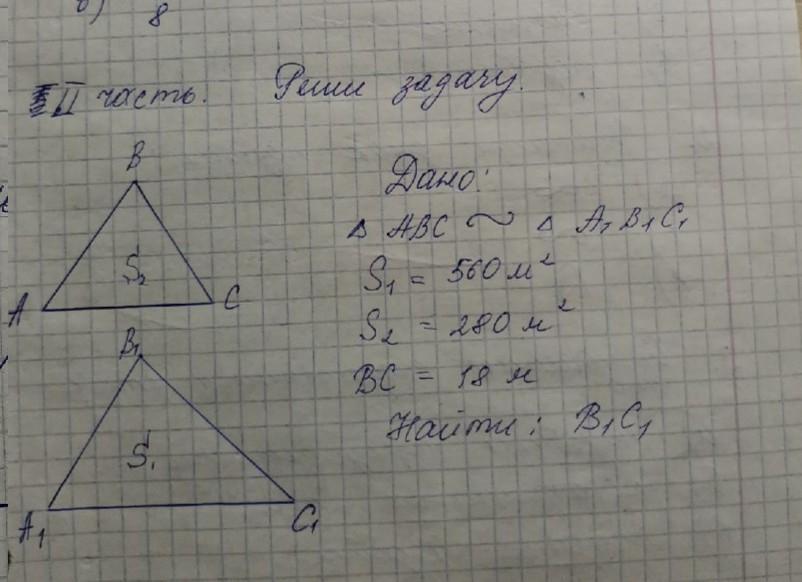 8
II часть. Реши задачу.
B
S₂
A C
B₁
S₁
A₁ C₁
Дано:
△ ABC ~ △ A₁B₁C₁
S₁ = 560 м²
S₂ = 280 м²
BC = 18 м
Найти: B₁C₁